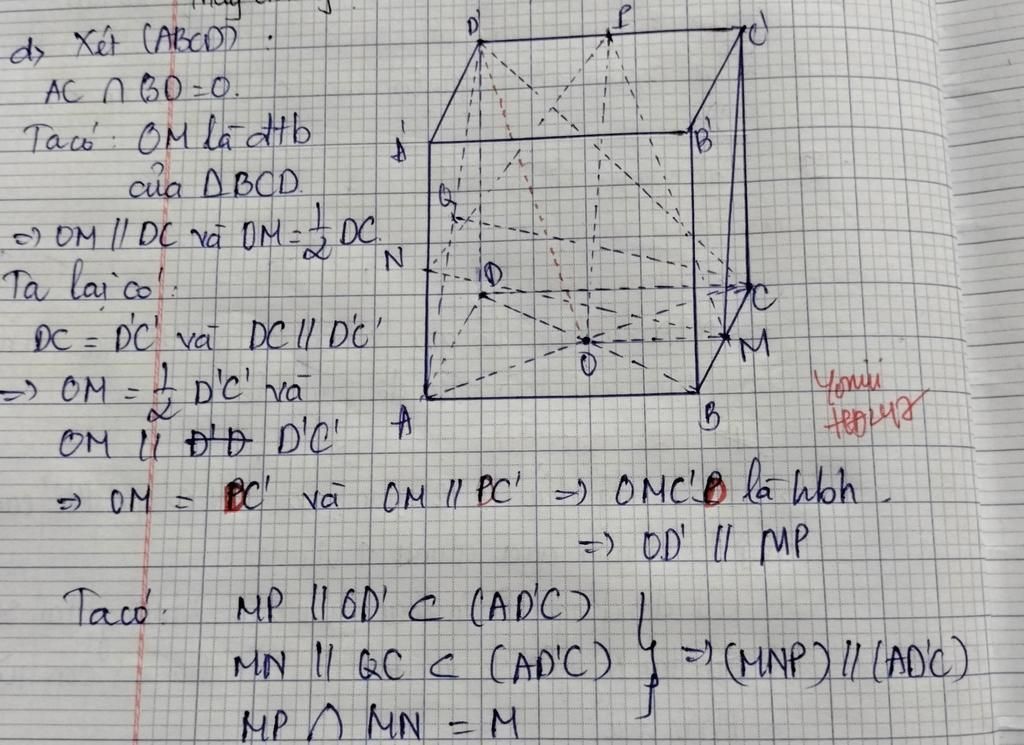 d) Xét (ABCD) :
AC ∩ BD = O.
Ta có: OM là đtb
của ΔBCD.
=> OM // DC và OM = 1/2 DC.
Ta lại có:
DC = D'C' và DC // D'C'
=> OM = 1/2 D'C' và
OM // D'D D'C'
=> OM = PC' và OM // PC' => OMC'P là hbh.
=> OD' // MP
Ta có: MP // OD' ⊂ (AD'C)
MN // QC ⊂ (AD'C) } => (MNP) // (AD'C)
MP ∩ MN = M
D'
P
C'
A'
B'
Q
N
D
C
M
O
A
B